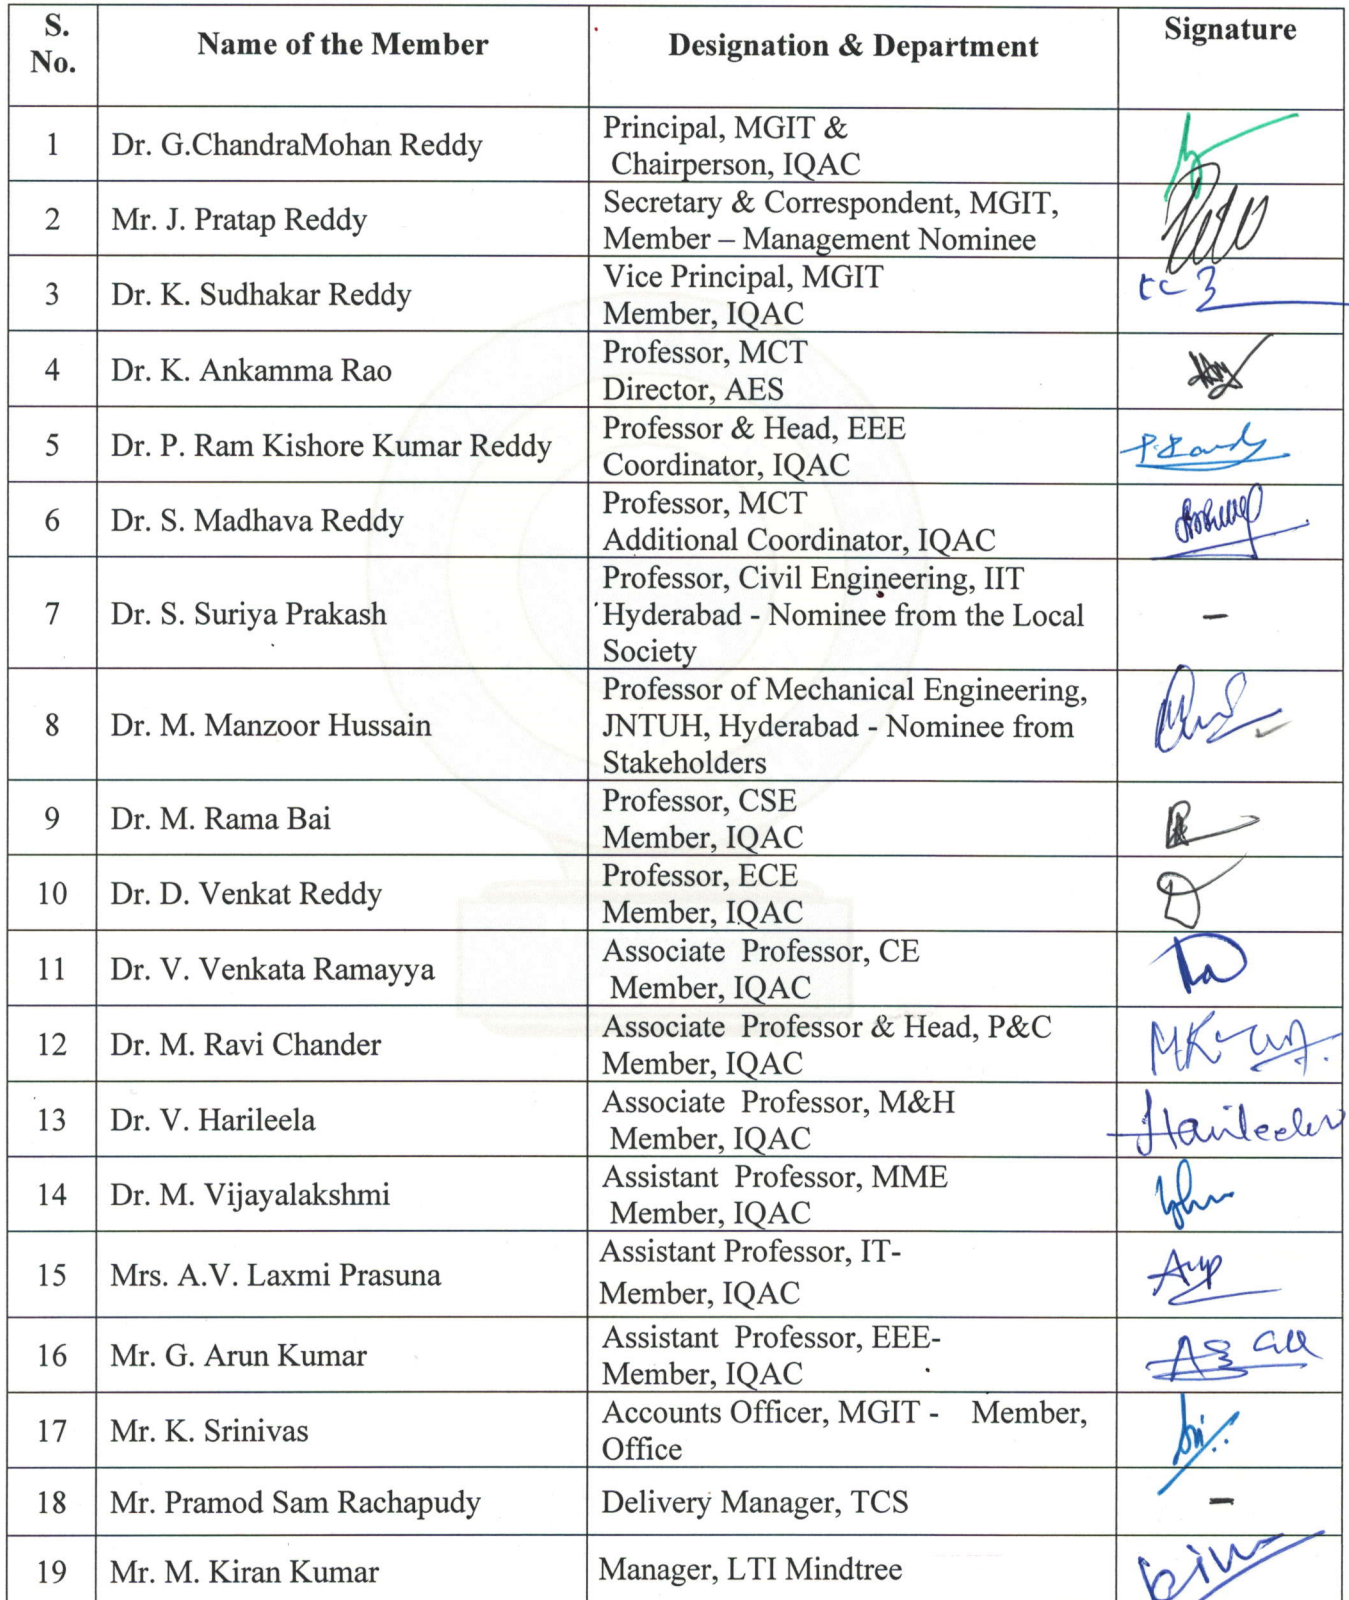 S. No. Name of the Member Designation & Department Signature
1 Dr. G.ChandraMohan Reddy Principal, MGIT &
Chairperson, IQAC
2 Mr. J. Pratap Reddy Secretary & Correspondent, MGIT,
Member – Management Nominee
3 Dr. K. Sudhakar Reddy Vice Principal, MGIT
Member, IQAC
4 Dr. K. Ankamma Rao Professor, MCT
Director, AES
5 Dr. P. Ram Kishore Kumar Reddy Professor & Head, EEE
Coordinator, IQAC
6 Dr. S. Madhava Reddy Professor, MCT
Additional Coordinator, IQAC
7 Dr. S. Suriya Prakash Professor, Civil Engineering, IIT
Hyderabad - Nominee from the Local
Society
–
8 Dr. M. Manzoor Hussain Professor of Mechanical Engineering,
JNTUH, Hyderabad - Nominee from
Stakeholders
9 Dr. M. Rama Bai Professor, CSE
Member, IQAC
10 Dr. D. Venkat Reddy Professor, ECE
Member, IQAC
11 Dr. V. Venkata Ramayya Associate Professor, CE
Member, IQAC
12 Dr. M. Ravi Chander Associate Professor & Head, P&C
Member, IQAC
13 Dr. V. Harileela Associate Professor, M&H
Member, IQAC
Harileela
14 Dr. M. Vijayalakshmi Assistant Professor, MME
Member, IQAC
15 Mrs. A.V. Laxmi Prasuna Assistant Professor, IT-
Member, IQAC
16 Mr. G. Arun Kumar Assistant Professor, EEE-
Member, IQAC
17 Mr. K. Srinivas Accounts Officer, MGIT - Member,
Office
18 Mr. Pramod Sam Rachapudy Delivery Manager, TCS –
19 Mr. M. Kiran Kumar Manager, LTI Mindtree